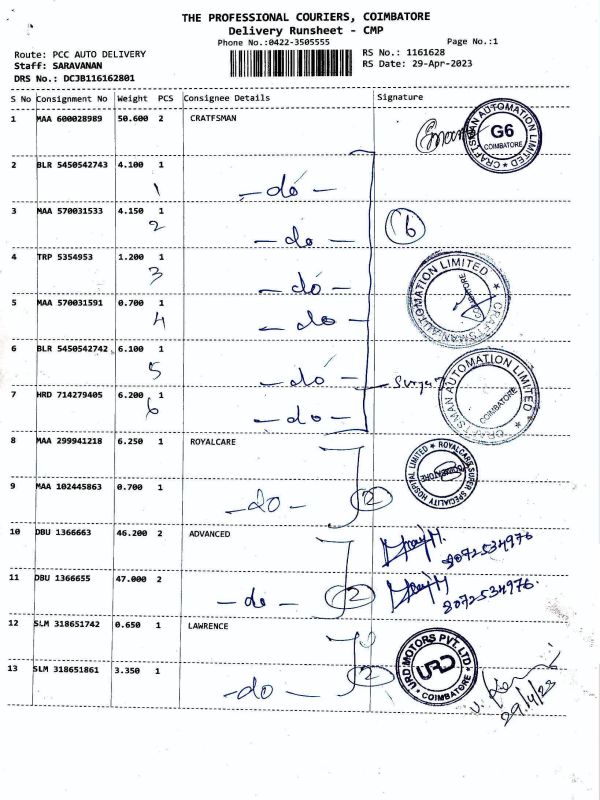 THE PROFESSIONAL COURIERS, COIMBATORE
Delivery Runsheet - CMP
Phone No.:0422-3505555 Page No.:1
Route: PCC AUTO DELIVERY RS No.: 1161628
Staff: SARAVANAN RS Date: 29-Apr-2023
DRS No.: DCJB116162801
S No Consignment No Weight PCS Consignee Details Signature
1 MAA 600028989 50.600 2 CRATFSMAN
CRAFTSMAN AUTOMATION LIMITED G6 COIMBATORE
2 BLR 5450542743 4.100 1
1 - do -
3 MAA 570031533 4.150 1
2 - do - 6
4 TRP 5354953 1.200 1
3 - do -
CRAFTSMAN AUTOMATION LIMITED COIMBATORE
5 MAA 570031591 0.700 1
4 - do -
6 BLR 5450542742 6.100 1
5 - do -
CRAFTSMAN AUTOMATION LIMITED COIMBATORE
7 HRD 714279405 6.200 1
6 - do -
8 MAA 299941218 6.250 1 ROYALCARE
ROYALCARE SUPER SPECIALITY HOSPITAL LIMITED COIMBATORE
9 MAA 102445863 0.700 1
- do - 2
10 DBU 1366663 46.200 2 ADVANCED
8072534976
11 DBU 1366655 47.000 2
- do - 2 8072534976.
12 SLM 318651742 0.650 1 LAWRENCE
URD MOTORS PVT. LTD. URD COIMBATORE
13 SLM 318651861 3.350 1
- do - 2
29/4/23